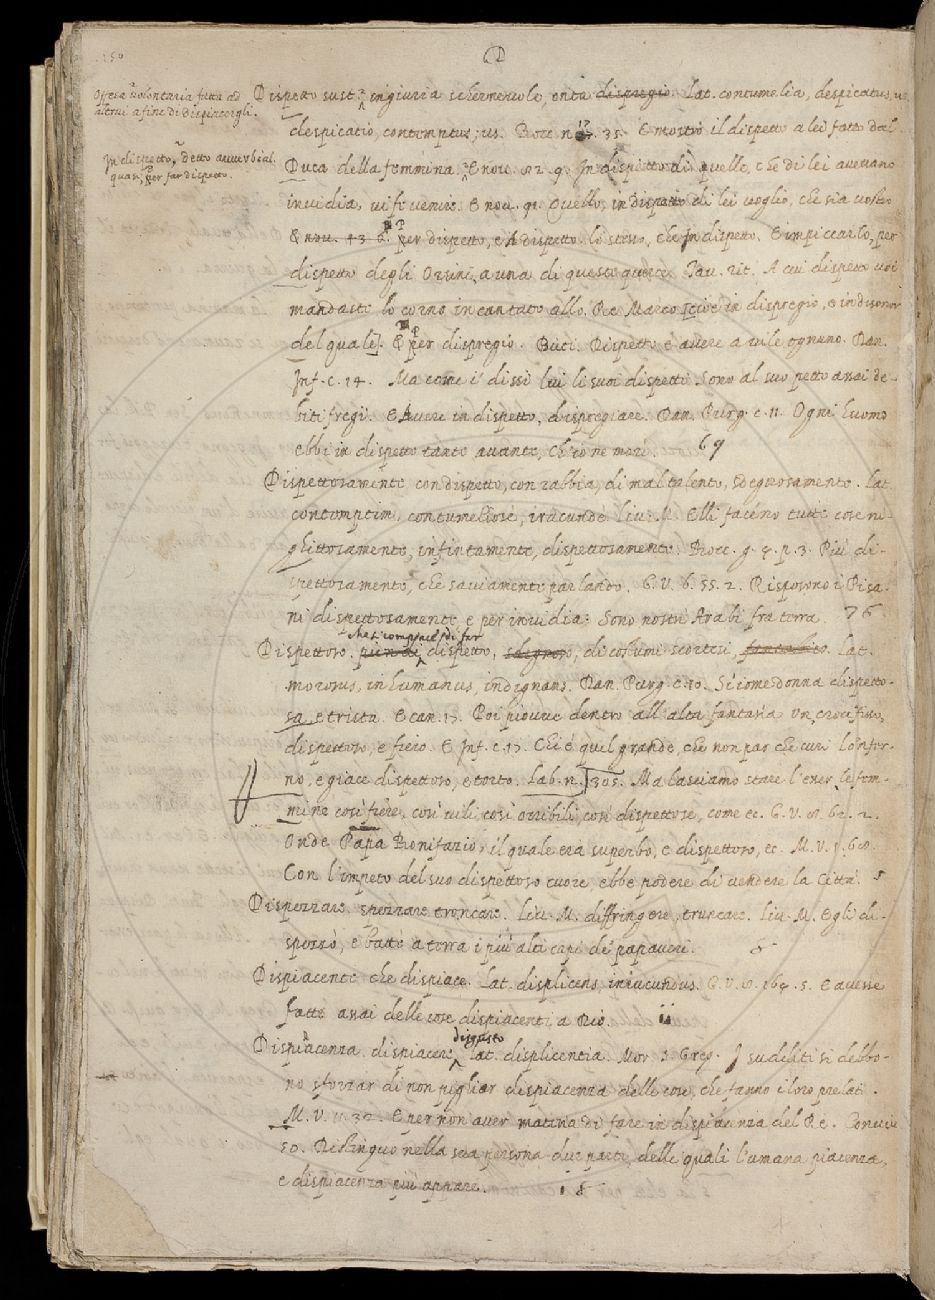 150
D
Offesa volontaria fatta ad
altrui a fine di dispiacergli.
In dispetto, detto avverbial.
quasi, per far dispetto.
Dispetto sust. ingiuria schernevole, onta dispregio. Lat. contumelia, despicatus, us
despicatio, contemptus, us. Bocc. n. 17. 35. E mostrò il dispetto a lei fatto dal
Duca della femmina. E nou. 82. 9. In dispetto di quelle, che di lei aueuano
inuidia, ui fi uenire. E nou. 91. Quello, in dispetto di lei uoglio, che sia uostro
E nou. 43. 6. per dispetto, e A dispetto lo stesso, che In dispetto. E impiccarlo, per
dispetto degli Orsini, a una di queste querce. Tau. rit. A cui dispetto uoi
mandaste lo corno incantato allo Re Marco [cioè in dispregio, e in disonor
del quale]. E per dispregio. Buti. Dispetto è auere a uile ognuno. Dan.
Inf. c. 14. Ma come i' dissi lui li suoi dispetti Sono al suo petto assai de-
biti fregi. E Auere in dispetto, dispregiare. Dan. Purg. c. 11. Ogni huomo
ebbi in dispetto tanto auante, Ch'io ne mori. 69
Dispettosamente con dispetto, con rabbia, di mal talento, sdegnosamente. Lat.
contemptim, contumeliose, iracunde Liu. M. Elli faceno tutte cose ni-
ghittosamente, infintamente, dispettosamente. Bocc. g. 4. p. 3. Più di-
spettosamente, che sauiamente parlando. G. V. 6. 55. 2. Risposono i Pisa-
ni dispettosamente e per inuidia: Sono nostri Arabi fra terra. 76
che si compiace di far
Dispettoso. pien di dispetto, sdegnoso, di costumi scortesi, fantastico. Lat.
morosus, inhumanus, indignans. Dan. Purg. c. 10. Si come donna dispetto-
sa, e trista. E can. 17. Poi piouue dentro all'alta fantasia Un crocifisso,
dispettoso, e fiero. E Inf. c. 14. Chi è quel grande, che non par che curi Lo'nfer-
no, e giace dispettoso, e torto. Lab. n.] 305. Ma lasciamo stare l'esser le fem-
mine così fiere, così uili, così orribili, così dispettose, come ec. G. V. 8. 62. 2.
Onde Papa Bonifazio, il quale era superbo, e dispettoso, ec. M. V. 1. 60.
Con l'impeto del suo dispettoso cuore, ebbe podere di uendere la Città. 5
Dispezzare. spezzare troncare. Liu. M. diffringere, truncare. Liu. M. Egli di-
spezzò, e battè a terra i più alti capi de' papaueri. 5
Dispiacente che dispiace. Lat. displicens, iniucundus. G. V. 8. 64. 5. E auesse
fatte assai delle cose dispiacenti a Dio. ii
disgusto
Dispiacenza dispiacere lat. displicentia. Mor. S. Greg. I sudditi si debbo-
no sforzar di non pigliar dispiacenza delle cose, che fanno i loro prelati.
M. V. 11. 32. E per non auer materia di fare in dispiacenza del Re. Conuiu.
50. Distinguo nella sua persona due parti, delle quali l'umana piacenza,
e dispiacenza più appare. 18